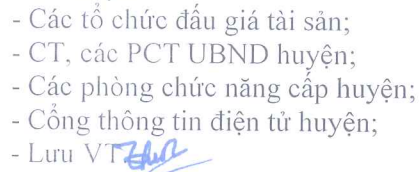 - Các tổ chức đấu giá tài sản;
- CT, các PCT UBND huyện;
- Các phòng chức năng cấp huyện;
- Cổng thông tin điện tử huyện;
- Lưu VT